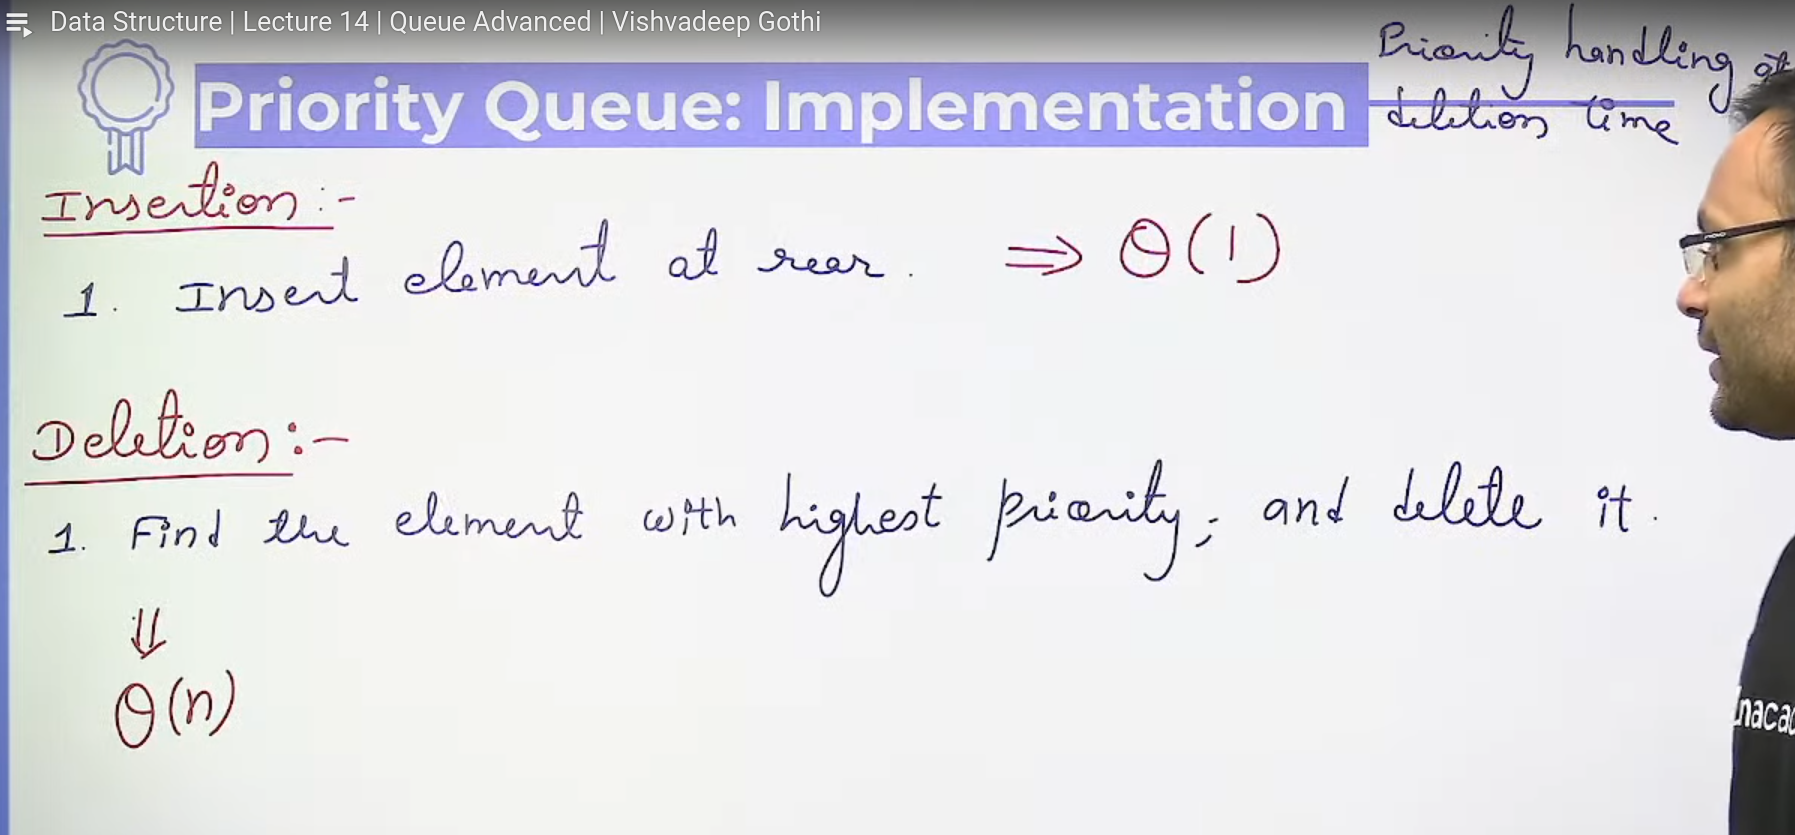 Data Structure | Lecture 14 | Queue Advanced | Vishvadeep Gothi
Priority Queue: Implementation
Priority handling at
deletion time
Insertion :-
1. Insert element at rear. ⇒ θ(1)
Deletion :-
1. Find the element with highest priority, and delete it.
⇓
θ(n)